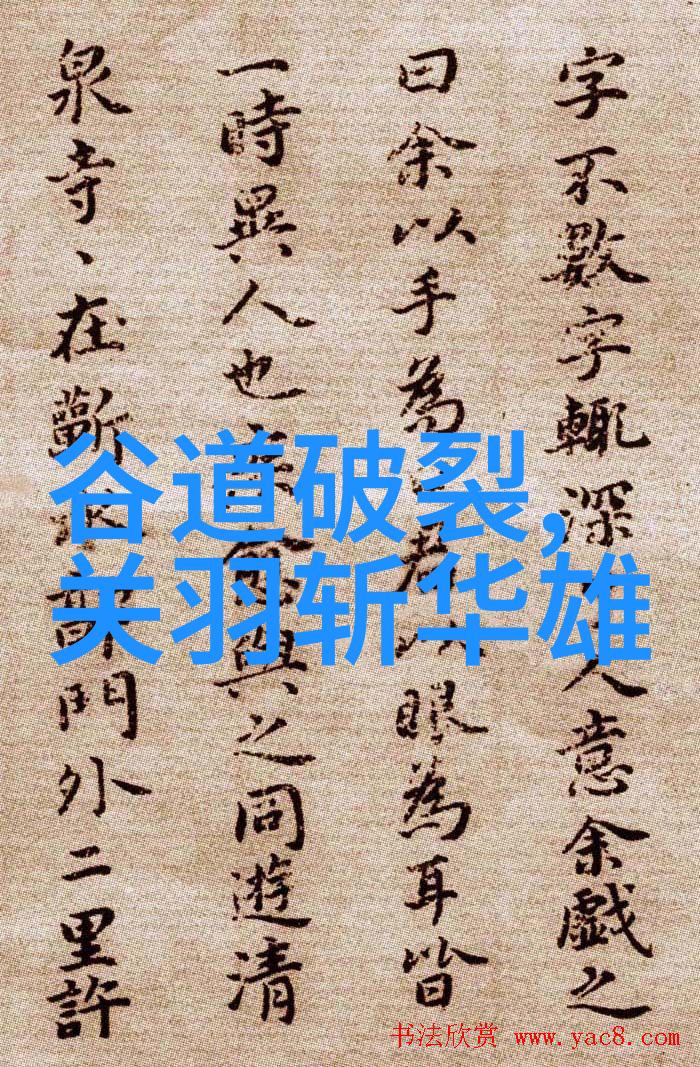 字不數字輒深人意余戲之
曰余以手為君以眼為耳皆
一時異人也與之同遊清
泉寺、在蘄門外二里許
谷道破裂,
关羽斩华雄
书法欣赏 www.yac8.com